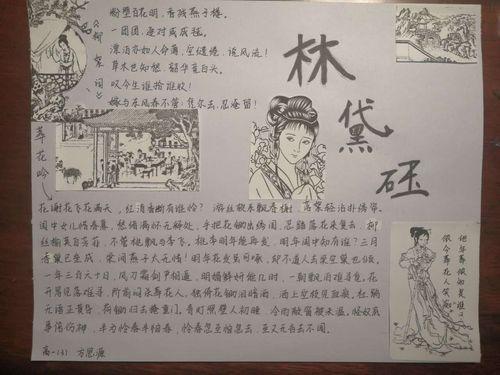 《柳絮词》
粉堕百花洲，香残燕子楼。
一团团，逐对成毬。
漂泊亦如人命薄，空缱绻，说风流！
草木也知愁，韶华竟白头。
叹今生谁拾谁收！
嫁与东风春不管，凭尔去，忍淹留！
林黛玉
葬花吟
花谢花飞花满天，红消香断有谁怜？游丝软系飘春榭，落絮轻沾扑绣帘。
闺中女儿惜春暮，愁绪满怀无释处，手把花锄出绣闺，忍踏落花来复去。柳
丝榆荚自芳菲，不管桃飘与李飞，桃李明年能再发，明年闺中知有谁？三月
香巢已垒成，梁间燕子太无情！明年花发虽可啄，却不道人去梁空巢也倾。
一年三百六十日，风刀霜剑严相逼，明媚鲜妍能几时，一朝飘泊难寻觅。花
开易见落难寻，阶前闷杀葬花人，独倚花锄泪暗洒，洒上空枝见血痕，杜鹃
无语正黄昏，荷锄归去掩重门，青灯照壁人初睡，冷雨敲窗被未温，怪奴底
事倍伤神，半为怜春半恼春，怜春忽至恼忽去，至又无言去不闻。
高一(3) 方思源
他年葬侬知是谁
侬今葬花人笑痴